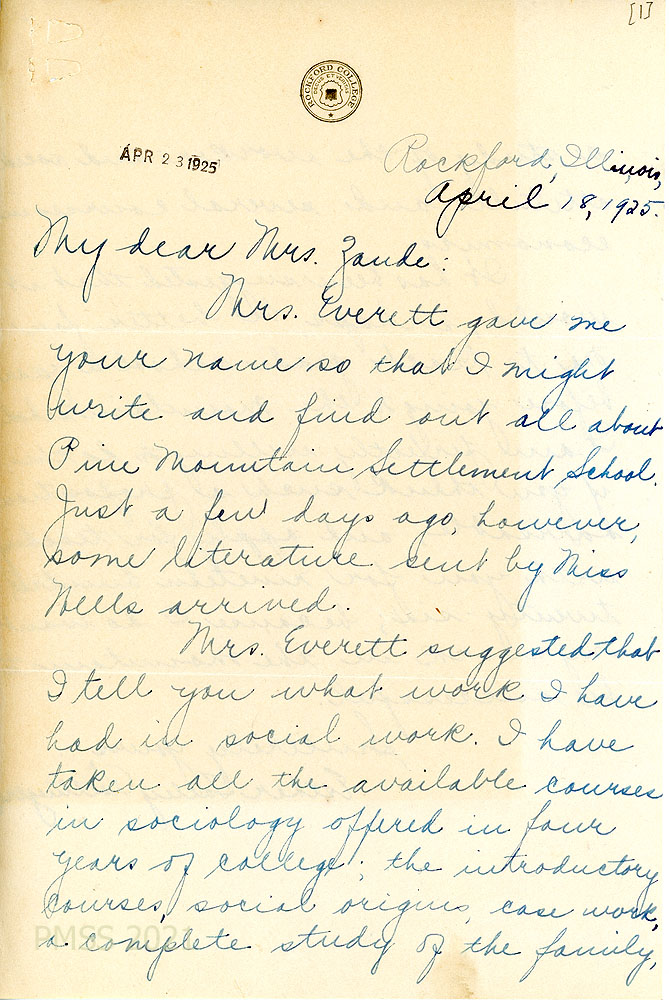 [1]
ROCKFORD COLLEGE
APR 23 1925
Rockford, Illinois,
April 18, 1925.
My dear Mrs. Zande:
Mrs. Everett gave me
your name so that I might
write and find out all about
Pine Mountain Settlement School.
Just a few days ago, however,
some literature sent by Miss
Wells arrived.
Mrs. Everett suggested that
I tell you what work I have
had in social work. I have
taken all the available courses
in sociology offered in four
years of college; the introductory
courses, social origins, case work,
a complete study of the family,
PMSS 2021